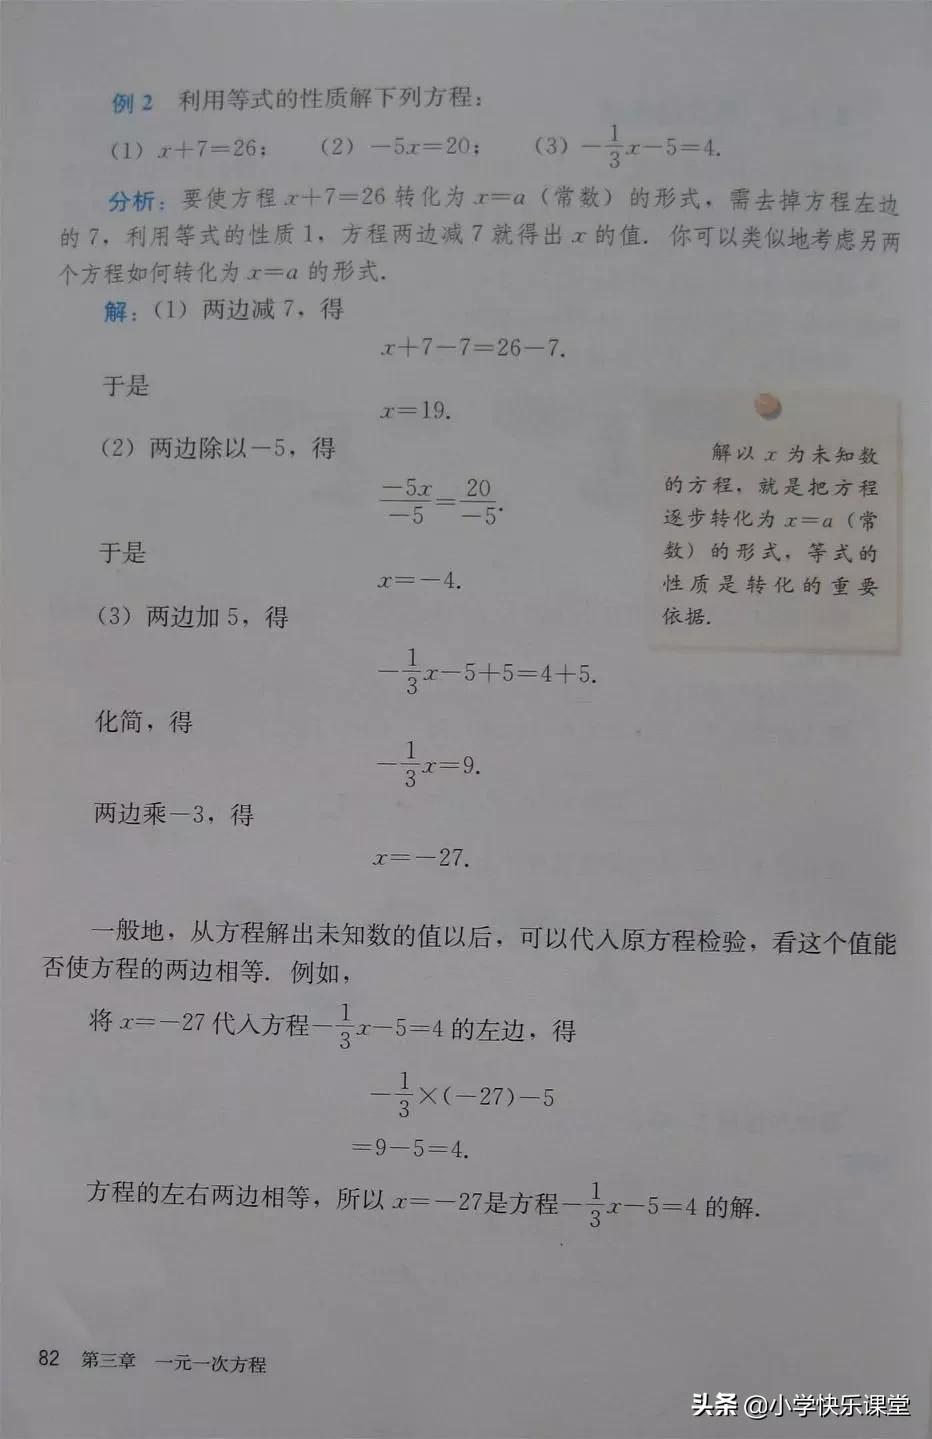 例 2 利用等式的性质解下列方程:
(1) x+7=26; (2) −5x=20; (3) −1/3x−5=4.
分析:要使方程 x+7=26 转化为 x=a(常数)的形式,需去掉方程左边
的 7,利用等式的性质 1,方程两边减 7 就得出 x 的值. 你可以类似地考虑另两
个方程如何转化为 x=a 的形式.
解:(1) 两边减 7,得
x+7−7=26−7.
于是
x=19.
(2) 两边除以−5,得
−5x/−5=20/−5.
于是
x=−4.
(3) 两边加 5,得
−1/3x−5+5=4+5.
化简,得
−1/3x=9.
两边乘−3,得
x=−27.
解以 x 为未知数
的方程,就是把方程
逐步转化为 x=a(常
数)的形式,等式的
性质是转化的重要
依据.
一般地,从方程解出未知数的值以后,可以代入原方程检验,看这个值能
否使方程的两边相等. 例如,
将 x=−27 代入方程−1/3x−5=4 的左边,得
−1/3×(−27)−5
=9−5=4.
方程的左右两边相等,所以 x=−27是方程−1/3x−5=4 的解.
82 第三章 一元一次方程
头条 @小学快乐课堂